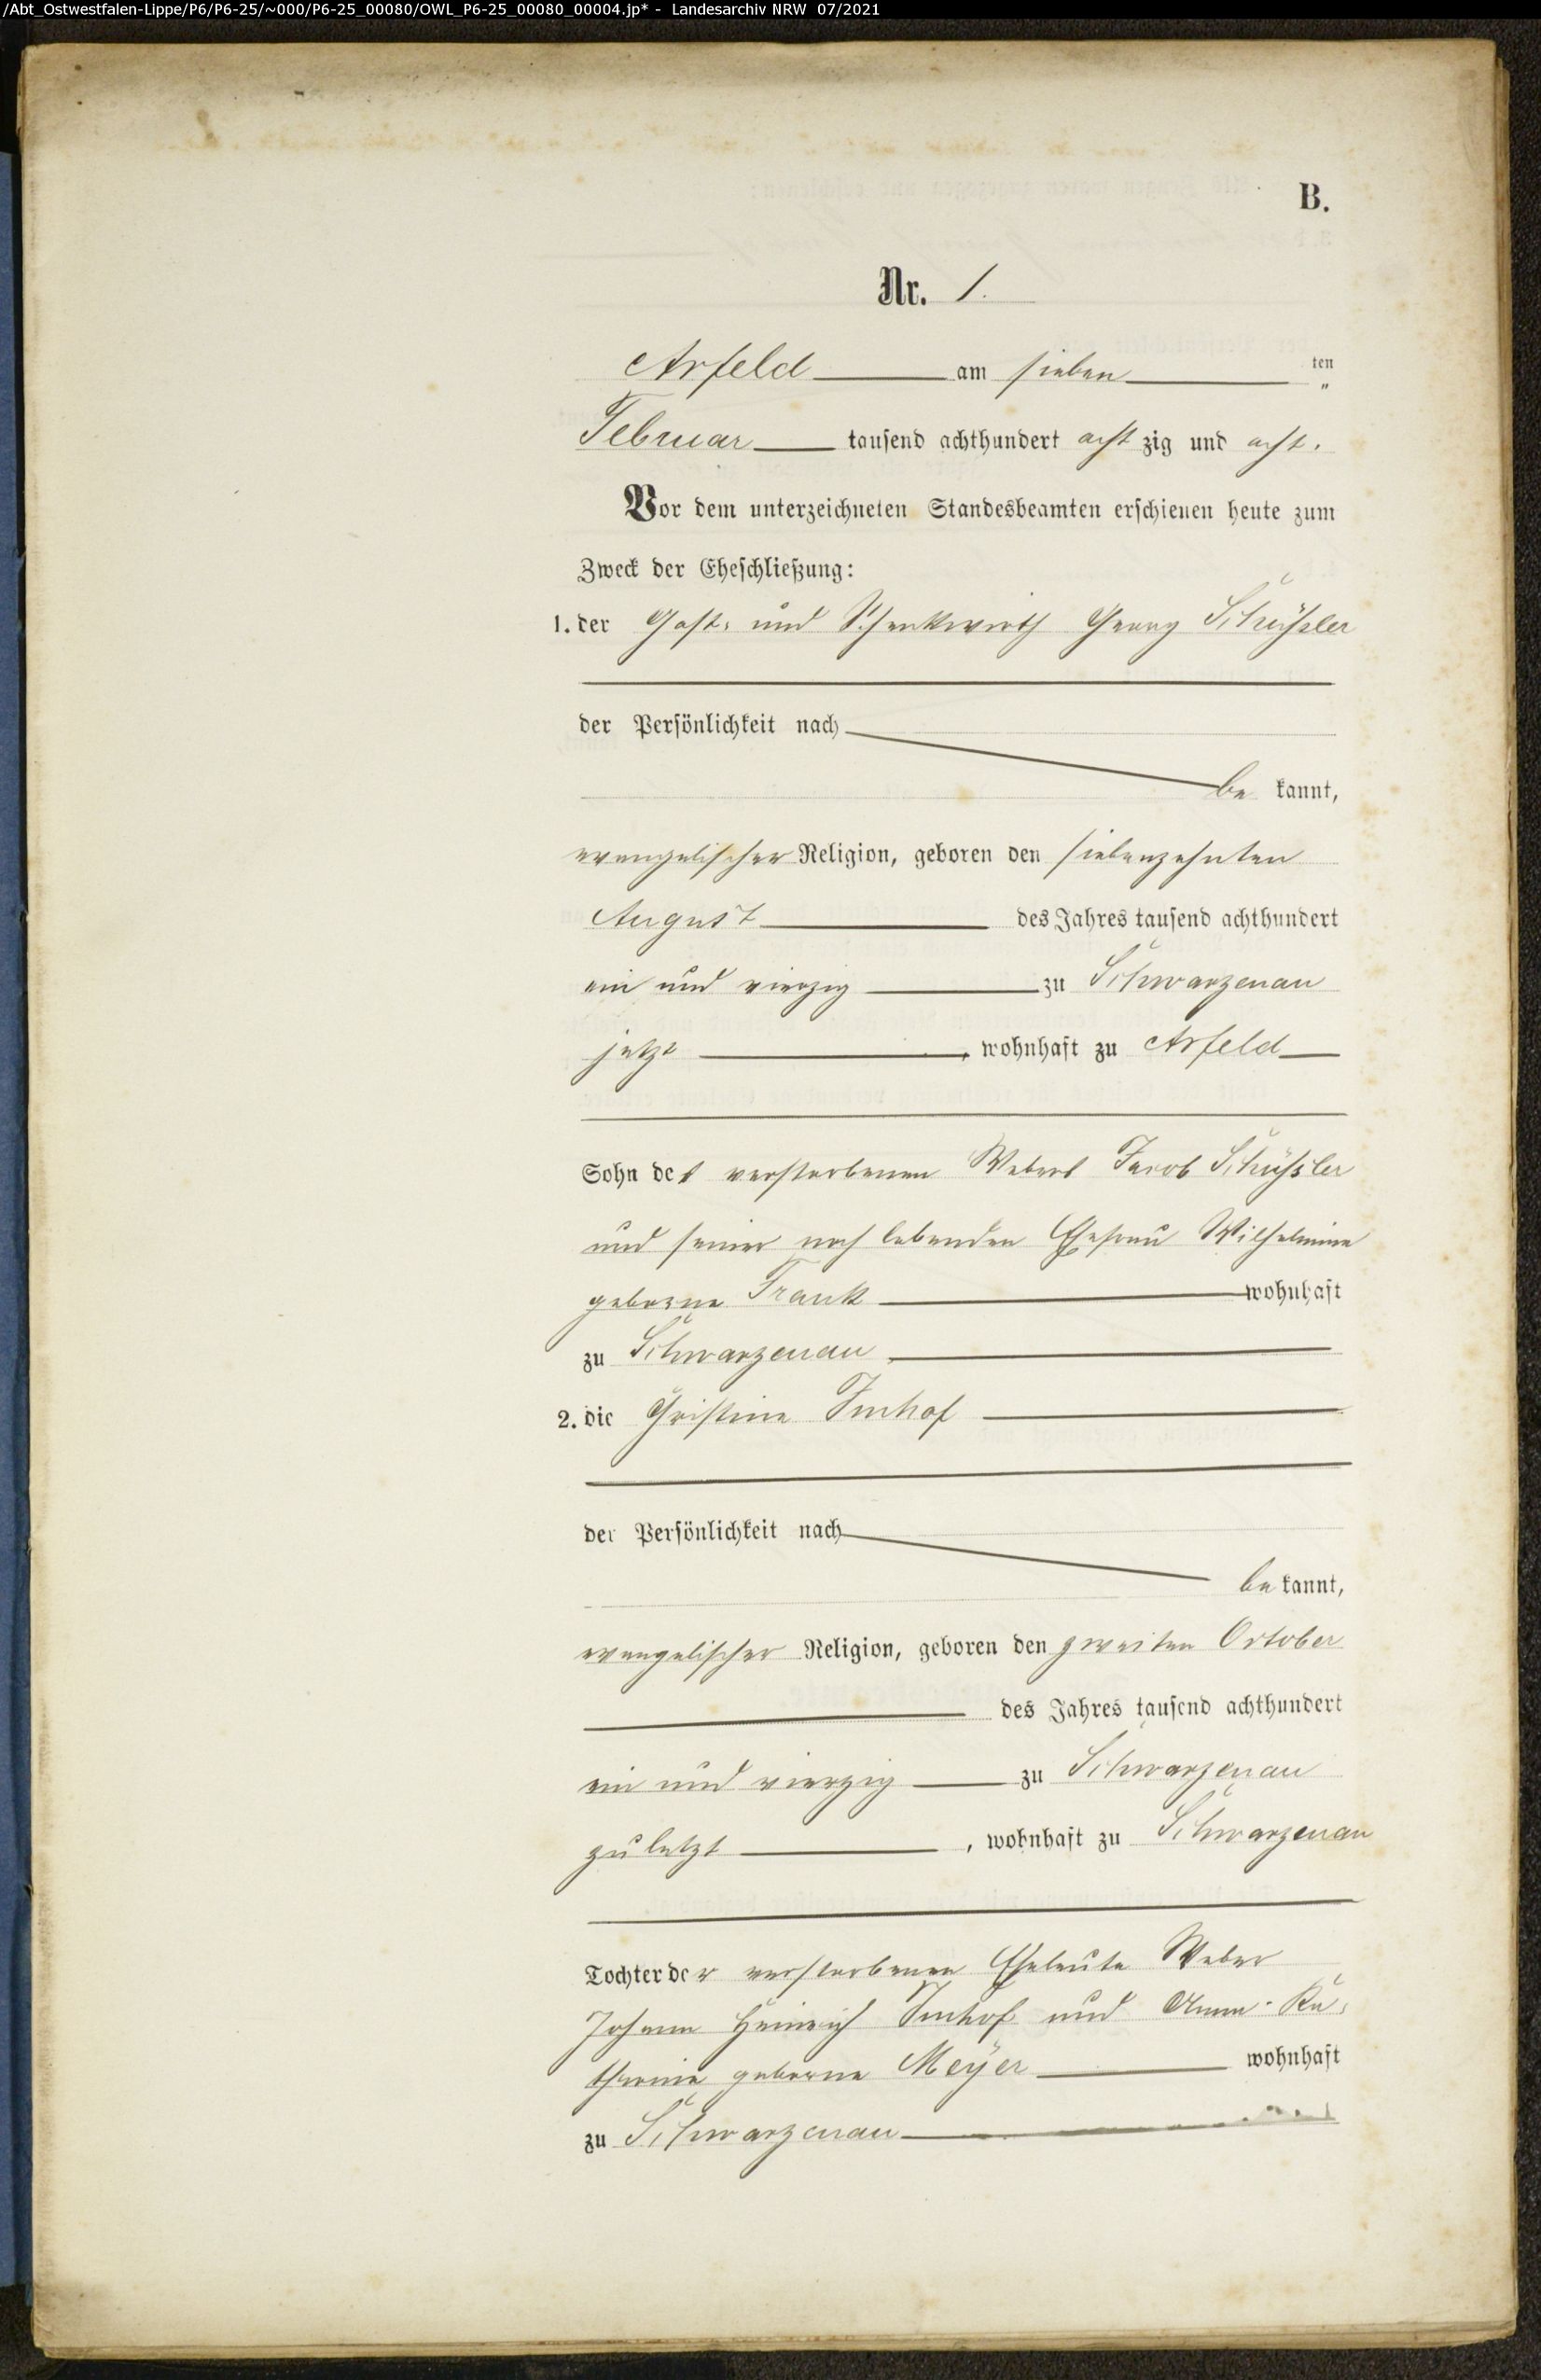 /Abt_Ostwestfalen-Lippe/P6/P6-25/~000/P6-25_00080/OWL_P6-25_00080_00004.jp* - Landesarchiv NRW 07/2021
B.
Nr. 1.
Arfeld am sieben ten
Februar tausend achthundert acht zig und acht.
Vor dem unterzeichneten Standesbeamten erschienen heute zum
Zweck der Eheschließung:
1. der Gast- und Schenkwirth Georg Schüßler
der Persönlichkeit nach
be kannt,
evangelischer Religion, geboren den siebenzehnten
August des Jahres tausend achthundert
ein und vierzig zu Schwarzenau
jetzt, wohnhaft zu Arfeld
Sohn des verstorbenen Webers Jacob Schüßler
und seiner noch lebenden Ehefrau Wilhelmine
geborne Frank wohnhaft
zu Schwarzenau
2. die Christine Imhof
der Persönlichkeit nach
be kannt,
evangelischer Religion, geboren den zweiten October
des Jahres tausend achthundert
ein und vierzig zu Schwarzenau
zuletzt, wohnhaft zu Schwarzenau
Tochter der verstorbenen Eheleute Weber
Johann Heinrich Imhof und Anna Ka-
tharine geborne Meyer wohnhaft
zu Schwarzenau